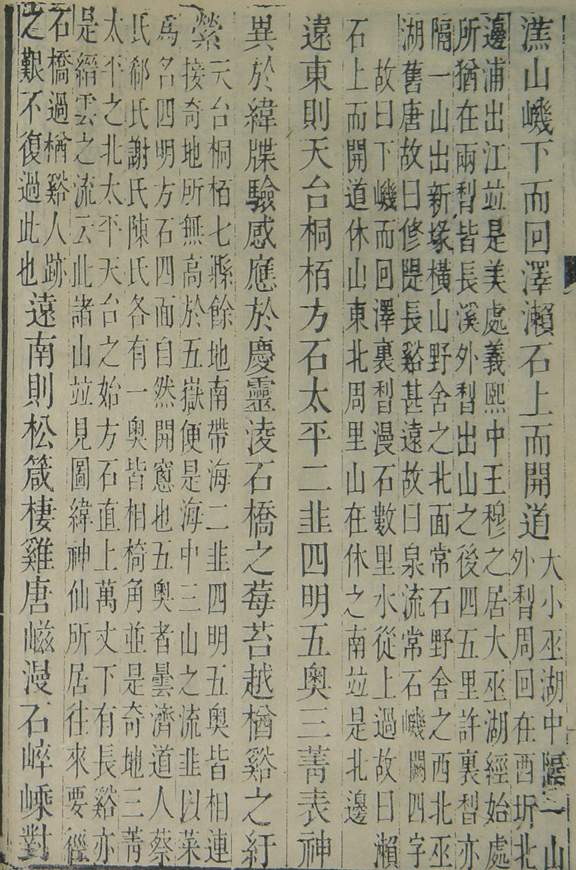 溔山㠉下而回澤瀨石上而開道
大小巫湖中隔一山
外㓪周回在西圻北
邊浦出江竝是美處義熙中王穆之居大巫湖經始處
所猶在兩㓪皆長溪外㓪出山之後四五里許裏㓪亦
隔一山出新㙐橫山野舍之北面常石野舍之西北巫
湖舊唐故曰修隄長谿甚遠故曰泉流常石㠉闕四字
故曰下㠉而回澤裏㓪漫石數里水從上過故曰瀨
石上而開道休山東北周里山在休之南竝是北邊
遠東則天台桐栢方石太平二韭四明五奧三菁表神
異於緯牒驗感應於慶靈淩石橋之莓苔越楢谿之紆
縈
天台桐栢七縣餘地南帶海二韭四明五奧皆相連
接奇地所無高於五嶽便是海中三山之流韭以菜
爲名四明方石四面自然開窻也五奧者曇濟道人蔡
氏郗氏謝氏陳氏各有一奧皆相椅角並是奇地三菁
太平之北太平天台之始方石直上萬丈下有長谿亦
是縉雲之流云此諸山竝見圖緯神仙所居往來要徑
石橋過楢谿人跡
之艱不復過此也
遠南則松箴棲雞唐嵫漫石崪嵊對